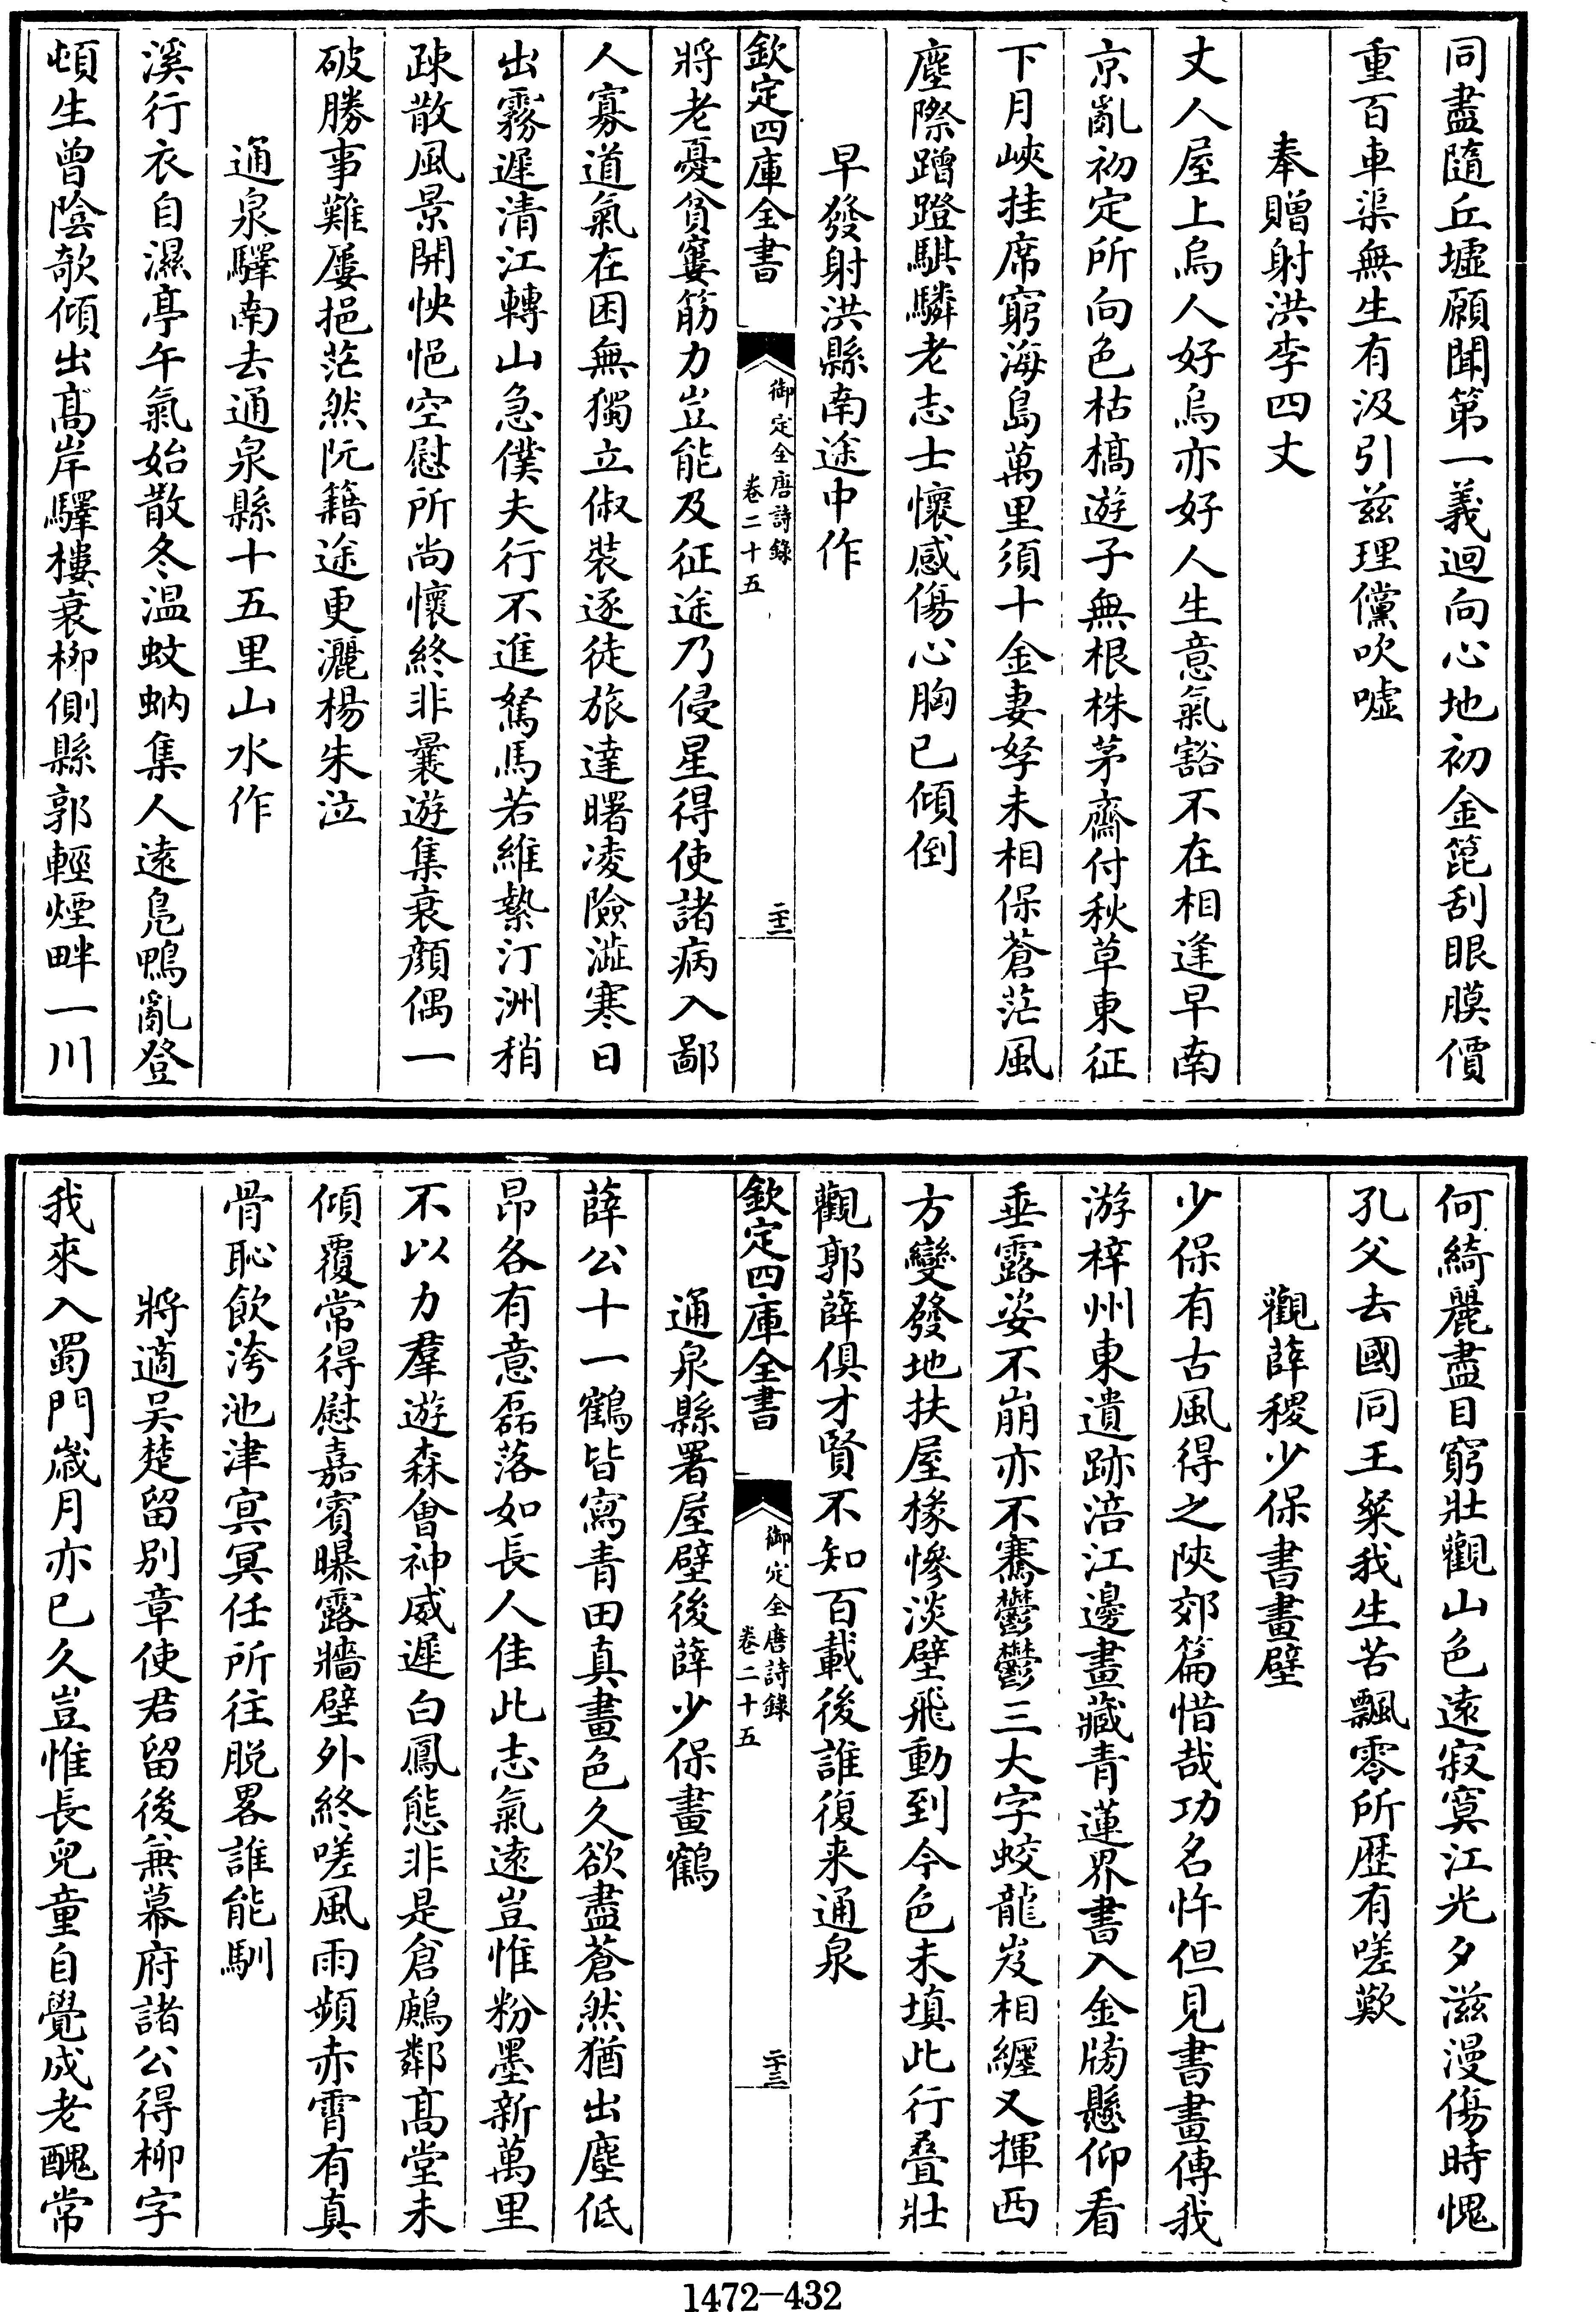 同盡隨丘墟願聞第一義迴向心地初金篦刮眼膜價
重百車渠無生有汲引兹理儻吹噓
奉贈射洪李四丈
丈人屋上烏人好烏亦好人生意氣豁不在相逢早南
京亂初定所向色枯槁遊子無根株茅齋付秋草東征
下月峽挂席窮海島萬里須十金妻孥未相保蒼茫風
塵際蹭蹬騏驎老志士懷感傷心胸已傾倒
早發射洪縣南途中作
欽定四庫全書
御定全唐詩錄
卷二十五
二十二
將老憂貧窶筋力豈能及征途乃侵星得使諸病入鄙
人寡道氣在困無獨立俶裝逐徒旅達曙凌險澁寒日
出霧遲清江轉山急僕夫行不進駑馬若維縶汀洲稍
疎散風景開怏悒空慰所尚懷終非曩遊集衰顔偶一
破勝事難屢挹茫然阮籍途更灑楊朱泣
通泉驛南去通泉縣十五里山水作
溪行衣自濕亭午氣始散冬温蚊蚋集人遠鳧鴨亂登
頓生曾陰欹傾出髙岸驛樓衰柳側縣郭輕煙畔一川
何綺麗盡日窮壯觀山色遠寂寞江光夕滋漫傷時愧
孔父去國同王粲我生苦飄零所歴有嗟歎
觀薛稷少保書畫壁
少保有古風得之陜郊篇惜哉功名忤但見書畫傳我
游梓州東遺跡涪江邊畫藏青蓮界書入金牓懸仰看
垂露姿不崩亦不騫鬱鬱三大字蛟龍岌相纒又揮西
方變發地扶屋椽慘淡壁飛動到今色未填此行叠壯
觀郭薛俱才賢不知百載後誰復来通泉
欽定四庫全書
御定全唐詩錄
卷二十五
二十三
通泉縣署屋壁後薛少保畫鶴
薛公十一鶴皆寫青田真畫色久欲盡蒼然猶出塵低
昂各有意磊落如長人佳此志氣遠豈惟粉墨新萬里
不以力羣遊森會神威遲白鳳態非是倉鶊鄰髙堂未
傾覆常得慰嘉賓曝露牆壁外終嗟風雨頻赤霄有真
骨恥飲洿池津㝠冥任所往脱畧誰能馴
將適吴楚留别章使君留後兼幕府諸公得柳字
我來入蜀門歳月亦已久豈惟長兒童自覺成老醜常
1472-432